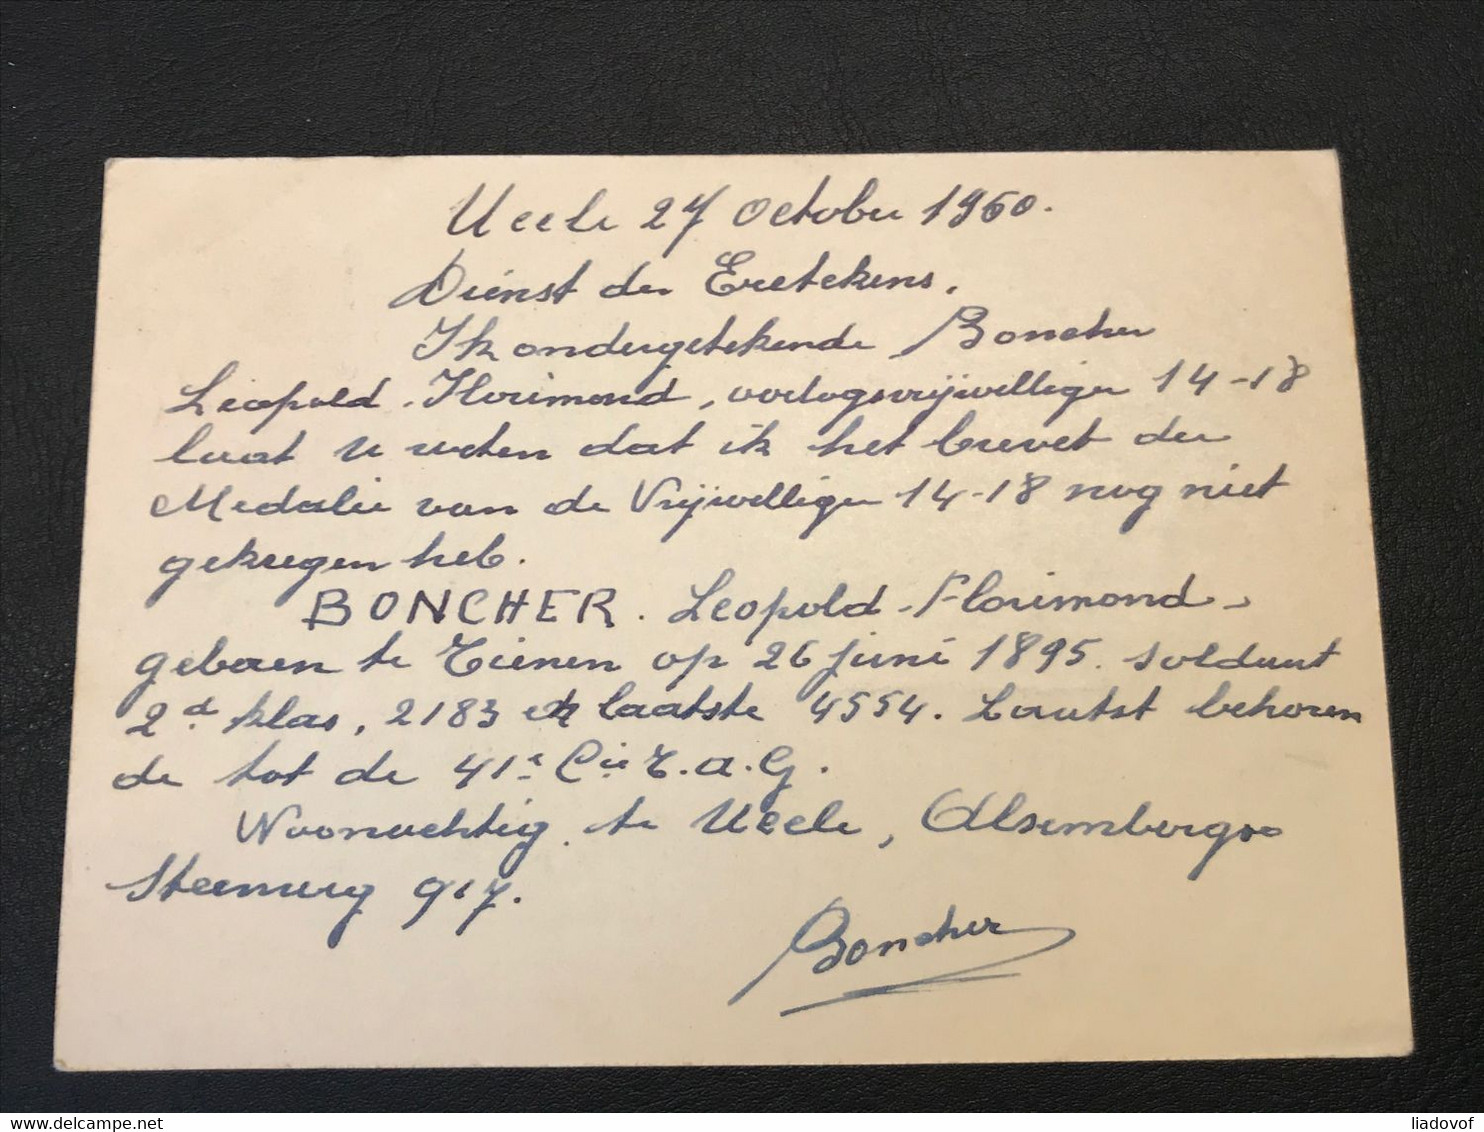 Uccle 27 October 1960.
Dienst der Eretekens.
Ik ondergetekende Boncher
Leopold-Florimond, oorlogsvrijwilliger 14-18
laat U weten dat ik het brevet der
Medalie van de Vrijwilliger 14-18 nog niet
gekregen heb.
BONCHER. Leopold-Florimond-
geboren te Tienen op 26 juni 1895. soldaat
2d klas, 2183 en laatste 4554. Laatst behoren
de tot de 41e Cie T.A.G.
Woonachtig te Uccle, Alsembergse
Steenweg 917.
Boncher
www.delcampe.net
liadovof